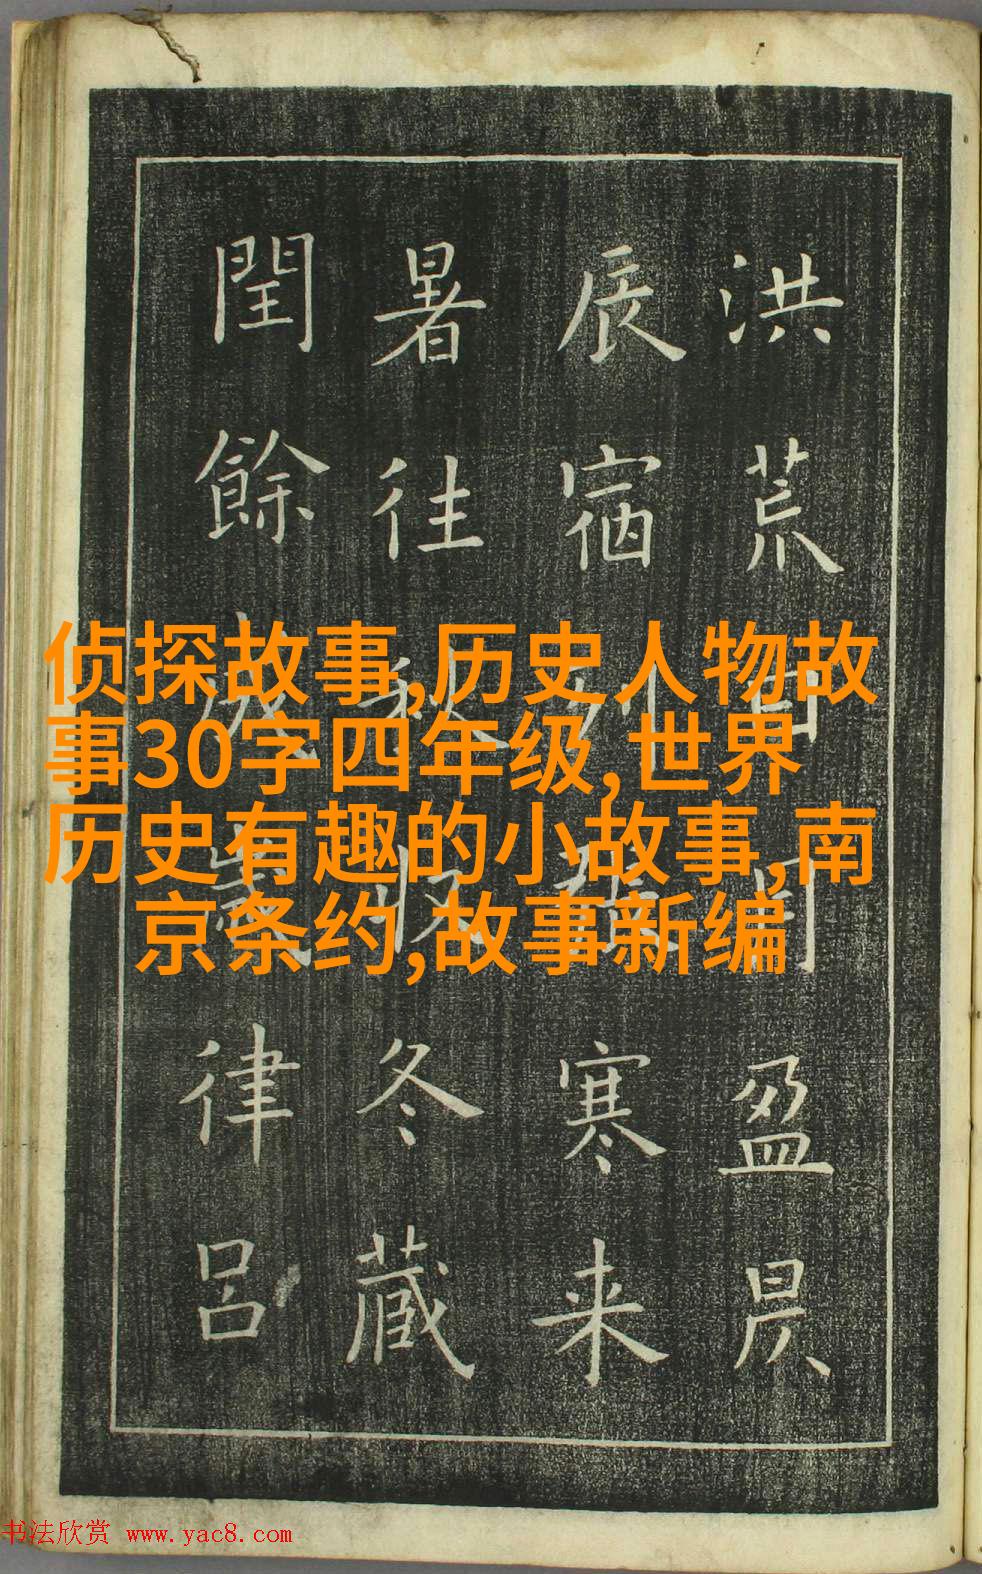 洪荒日月盈昃
辰宿列張寒来
暑往秋收冬藏
閏餘成歲律呂
侦探故事,历史人物故
事30字四年级,世界
历史有趣的小故事,南
京条约,故事新编
书法欣赏 www.yac8.com